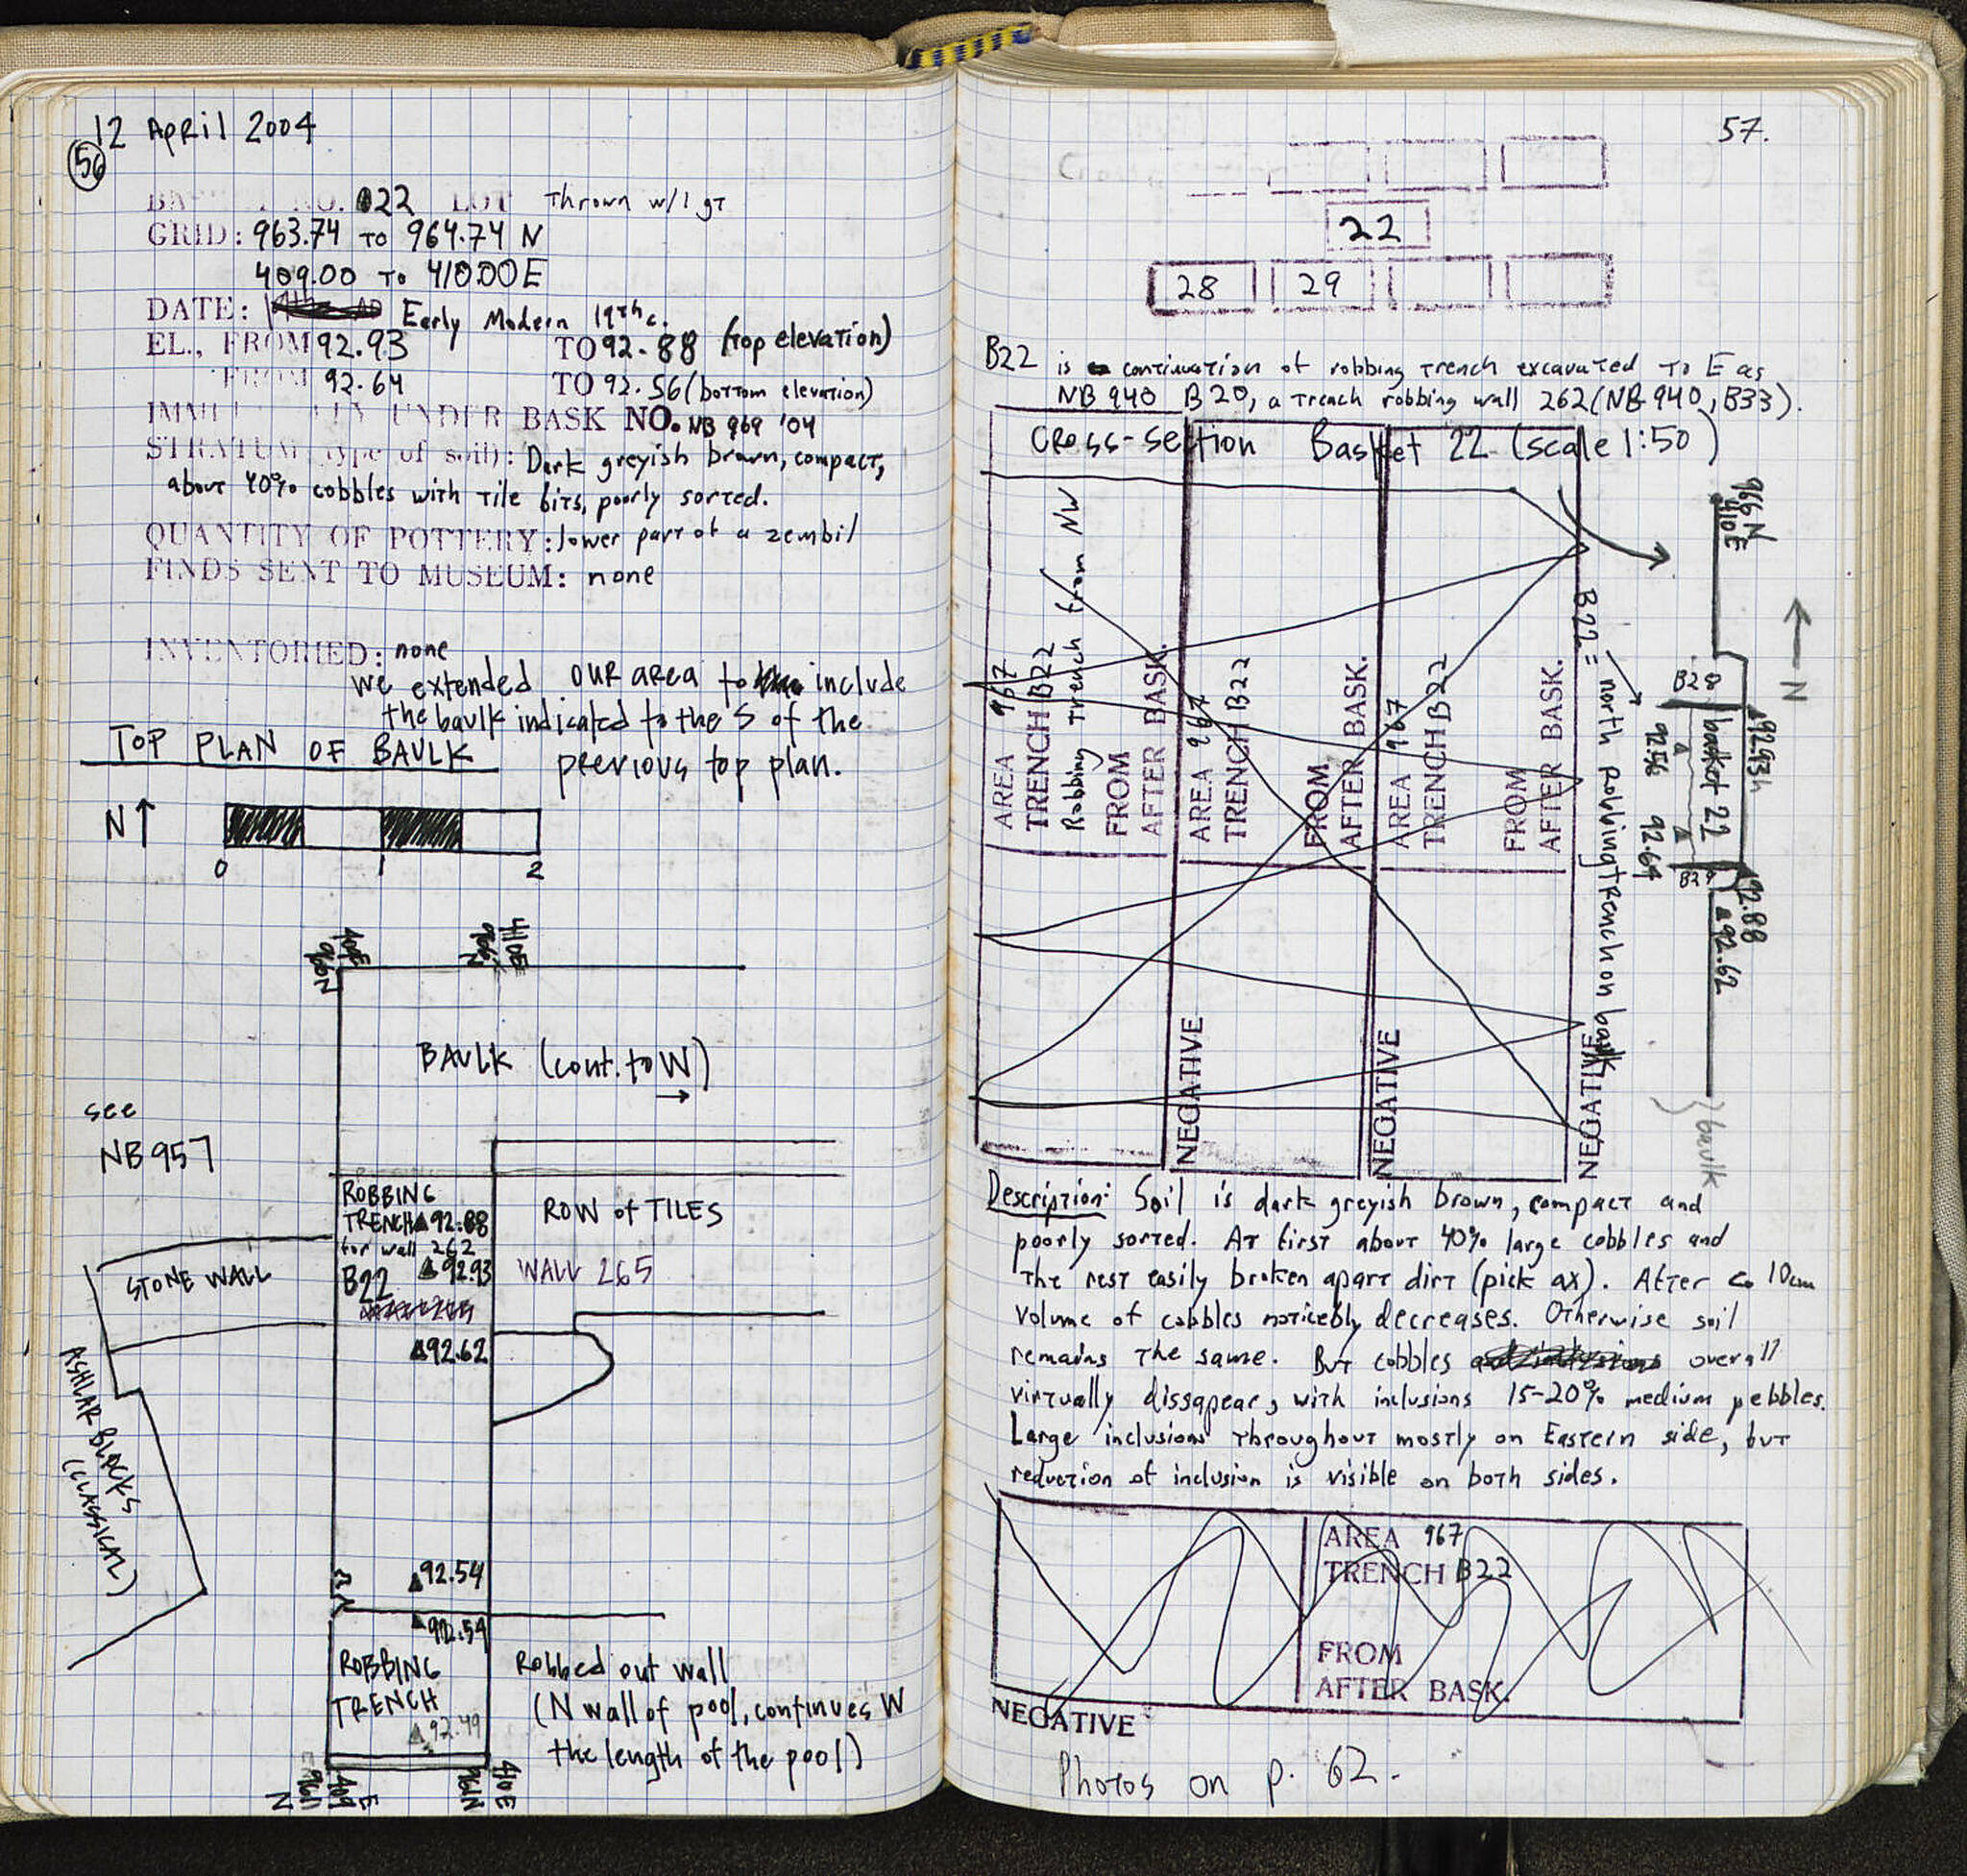 12 April 2004
56
BASKET NO. 022 LOT Thrown w/ 1 gt
GRID: 963.74 TO 964.74 N
409.00 TO 410.00 E
DATE: Early Modern 19th c.
EL., FROM 92.93 TO 92.88 (top elevation)
FROM 92.64 TO 92.56 (bottom elevation)
IMMEDIATELY UNDER BASK NO. NB 969 '04
STRATUM (type of soil): Dark greyish brown, compact,
about 40% cobbles with tile bits, poorly sorted.
QUANTITY OF POTTERY: lower part of a zembil
FINDS SENT TO MUSEUM: none
INVENTORIED: none
we extended our area to include
the baulk indicated to the S of the
previous top plan.
TOP PLAN OF BAULK
N
0 1 2
966N 409E
966N 410E
BAULK (cont. to W)
→
see
NB 957
ROBBING
TRENCH 92.88
for wall 262
92.93
B22
ROW of TILES
WALL 265
STONE WALL
92.62
ASHLAR BLOCKS
(CLASSICAL)
92.54
92.59
ROBBING
TRENCH
92.49
Robbed out wall
(N wall of pool, continues W
the length of the pool)
961 N 409 E
961N 410E
57.
22
28 29
B22 is continuation of robbing trench excavated to E as
NB 940 B20, a trench robbing wall 262 (NB 940, B33).
Cross-section Basket 22 (scale 1:50)
AREA 967
TRENCH B22
Robbing Trench from NW
FROM
AFTER BASK.
AREA 967
TRENCH B22
FROM
AFTER BASK.
NEGATIVE
AREA 967
TRENCH B22
FROM
AFTER BASK.
NEGATIVE
NEGATIVE
B22 = north robbing trench on baulk
966 N
410E
N
B28
92.93
92.56
basket 22
92.64
B29
92.88
92.62
baulk
Description: Soil is dark greyish brown, compact and
poorly sorted. At first about 40% large cobbles and
the rest easily broken apart dirt (pick ax). After c. 10cm
volume of cobbles noticebly decreases. Otherwise soil
remains the same. But cobbles overall
virtually dissapear, with inclusions 15-20% medium pebbles.
Large inclusions throughout mostly on Eastern side, but
reduction of inclusion is visible on both sides.
AREA 967
TRENCH B22
FROM
AFTER BASK.
NEGATIVE
Photos on p. 62.